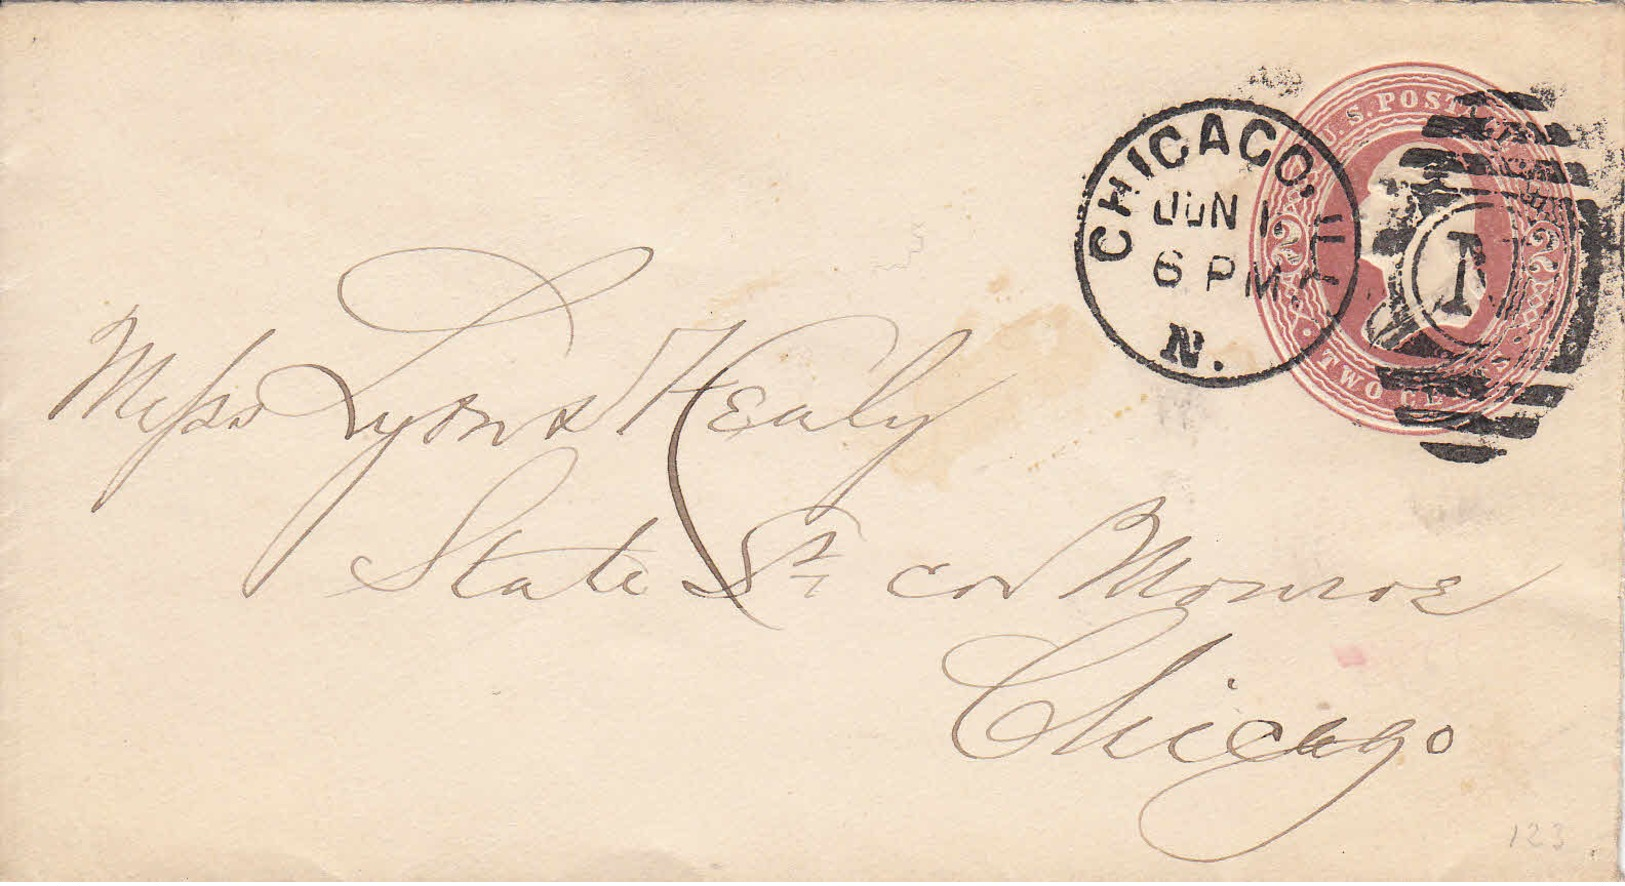 CHICAGO, ILL.
JUN 1
6 PM
N.
U.S. POSTAGE
2 2
TWO CENTS
Mess Lyon & Healy
State St. cor Monroe
Chicago
123